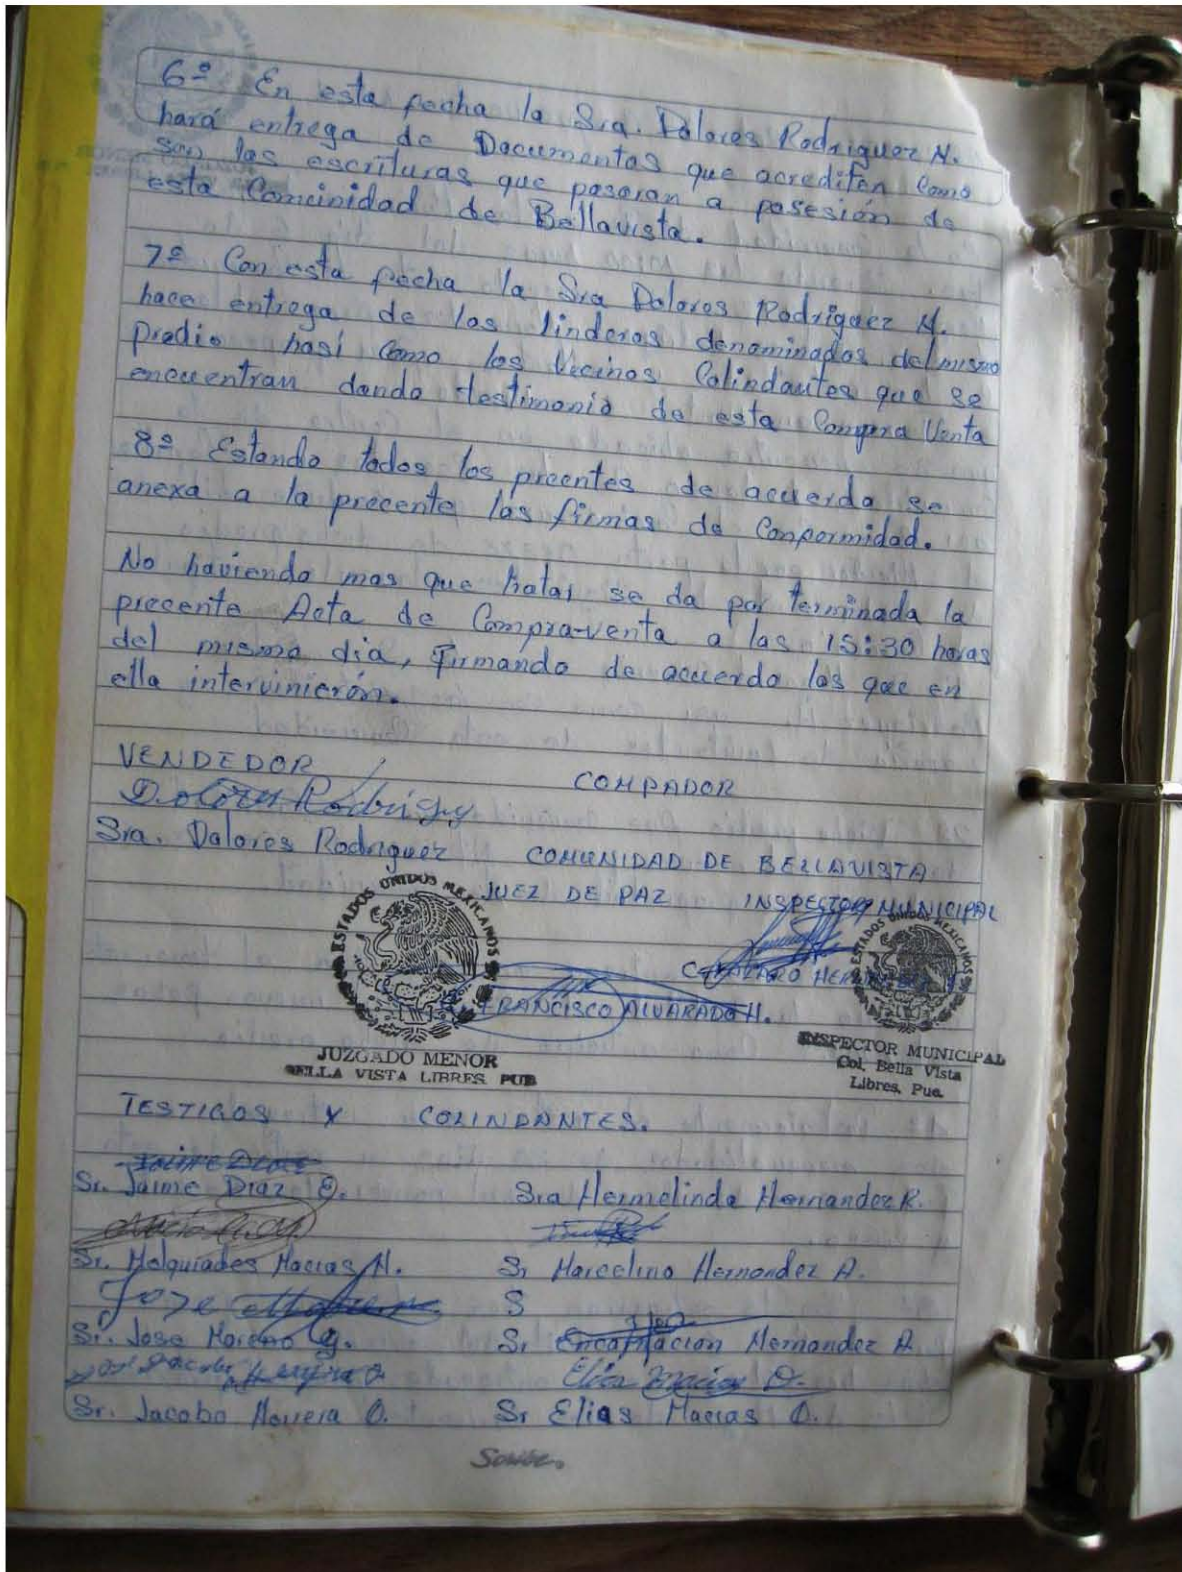 6º En esta fecha la Sra. Dolores Rodriguez N.
hará entrega de Documentos que acrediten Como
son las escrituras que pasaran a posesión de
esta Comunidad de Bellavista.
7º Con esta fecha la Sra Dolores Rodriguez N.
hace entrega de los linderos denominados del mismo
predio hasí Como los Vecinos Colindantes que se
encuentran dando testimonio de esta Compra Venta
8º Estando todos los precentes de acuerdo se
anexa a la precente las firmas de Conformidad.
No haviendo mas que tratar se da por terminada la
precente Acta de Compra-venta a las 15:30 horas
del mismo día, Firmando de acuerdo los que en
ella intervinierón.
VENDEDOR COMPADOR
Dolores Rodrigz
Sra. Dolores Rodriguez COMUNIDAD DE BELLAVISTA
JUEZ DE PAZ INSPECTOR MUNICIPAL
ESTADOS UNIDOS MEXICANOS
ESTADOS UNIDOS MEXICANOS
FRANCISCO ALVARADO H.
JUZGADO MENOR
BELLA VISTA LIBRES PUE
INSPECTOR MUNICIPAL
Col. Bella Vista
Libres, Pue.
TESTIGOS Y COLINDANTES.
Jaime Diaz
Sr. Jaime Diaz O. Sra Hermelinda Hernandez R.
Sr. Melquiades Macias H. Sr Marcelino Hernandez A.
Jose Moreno S
Sr. Jose Moreno G. Sr Encarnacion Hernandez A
Elias Macias O.
Sr. Jacobo Herrera O. Sr Elias Macias O.
Scribe.